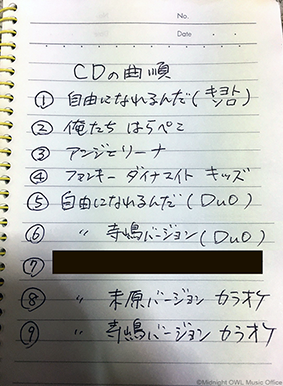 No.
Date
CDの曲順
① 自由になれるんだ(キヨトソロ)
② 俺たち はらぺこ
③ アンジェリーナ
④ ファンキー ダイナマイト キッズ
⑤ 自由になれるんだ(DuO)
⑥ 〃 寺嶋バージョン(DuO)
⑦
⑧ 〃 末原バージョン カラオケ
⑨ 〃 寺嶋バージョン カラオケ
©Midnight OWL Music Office